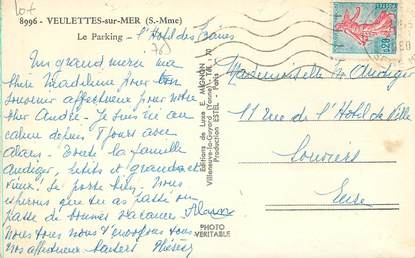 8996 - VEULETTES-sur-MER (S.-Mme)
Le Parking - l'Hotel des Bains
Un grand merci ma
chère Madeleine pour ton
souvenir affectueux pour notre
cher André. Je suis ici au
calme depuis 8 jours avec
Alain. Toute la famille
Andiger, petits et grands et
vieux. Se porte bien. Nous
espérons que tu as passé ou
passe de bonnes vacances. Alain
nous tous nous t'envoyons tous
nos affectueux baisers Thérèse
Editions de Luxe E. MIGNON
Villeneuve-la-Guyard (Yonne) Tél. 70
Production ESTEL - Paris
PHOTO
VERITABLE
0,20
Mademoiselle M. Andiger
11 rue de l'Hotel de Ville
Louviers
Eure